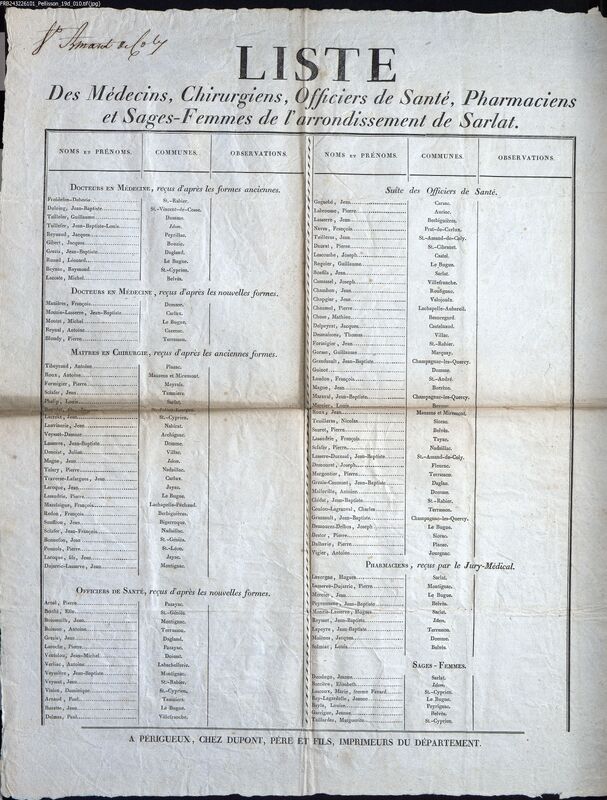 FRB243226101_Pellisson_19d_010.tif(jpg)
St Amand de Coly
LISTE
Des Médecins, Chirurgiens, Officiers de Santé, Pharmaciens
et Sages-Femmes de l'arrondissement de Sarlat.
NOMS ET PRÉNOMS. COMMUNES. OBSERVATIONS.
DOCTEURS EN MÉDECINE, reçus d'après les formes anciennes.
St.-Rabier.
Delzing, Jean-Baptiste St.-Vincent-de-Cosse.
Taillefer, Guillaume Domme.
Taillefer, Jean-Baptiste-Louis Idem.
Reynaud, Jacques Peyrillac.
Gibert, Jacques Bouzic.
Grezis, Jean-Baptiste Dagland.
Ruaud, Léonard Le Bugue.
Beynie, Raymond St.-Cyprien.
Lacoste, Michel Belvès.
DOCTEURS EN MÉDECINE, reçus d'après les nouvelles formes.
Mazières, François Domme.
Mounis-Lasserre, Jean-Baptiste Carlux.
Montet, Michel Le Bugue.
Reynal, Antoine
Blondy, Pierre Terrasson.
MAITRES EN CHIRURGIE, reçus d'après les anciennes formes.
Tibeyrand, Antoine Plazac.
Roux, Antoine Mauzens et Miremont.
Formigier, Pierre Meyrals.
Sclafer, Jean Tamniers.
Phelip, Louis Sarlat.
Lacroix, Jean St.-Cyprien.
Lauvinerie, Jean Nabirat.
Veysset-Domme Archignac.
Lasserre, Jean-Baptiste Domme.
Denoist, Julian Villac.
Magne, Jean Idem.
Valery, Pierre Nadaillac.
Traverse-Lafargues, Jean Carlux.
Laroque, Jean Jayac.
Lassudrie, Pierre Le Bugue.
Massissigue, François Lachapelle-Péchaud.
Redon, François Berbiguières.
Souffron, Jean Bigarroque.
Sclafer, Jean-François Nadaillac.
Bonnefon, Jean St.-Géniès.
Pommiés, Pierre St.-Léon.
Laroque, fils, Jean Jayac.
Dujarric-Lasserre, Jean Montignac.
OFFICIERS DE SANTÉ, reçus d'après les nouvelles formes.
Arnal, Pierre Pazayac.
Bouhé, Élie St.-Géniès
Boissouilh, Jean Montignac.
Buisson, Antoine Terrasson.
Grezis, Jean Dagland.
Laroche, Pierre Pazayac.
Ventelou, Jean-Michel Doissat.
Verliac, Antoine Labachellerie.
Veyssière, Jean-Baptiste Montignac.
Veyssat, Jean St.-Rabier.
Vialen, Dominique St.-Cyprien.
Arnaud, Paul Tamniers.
Bazette, Jean Le Bugue.
Delmas, Paul Villefranche.
NOMS ET PRÉNOMS. COMMUNES. OBSERVATIONS.
Suite des Officiers de Santé.
Goguebé, Jean
Labrousse, Pierre Auriac.
Lasserre, Jean Berbiguières.
Neyva, François Prat-de-Carlux.
Tailleras, Jean St.-Amand-de-Coly.
Duzeat, Pierre St.-Cibranet.
Lescombe, Joseph Castel.
Requier, Guillaume Le Bugue.
Bonfils, Jean Sarlat.
Camissel, Joseph Villefranche.
Chambon, Jean Rouffignac.
Chapgier, Jean Valojoulx.
Chaumel, Pierre Lachapelle-Aubareil.
Chose, Mathieu Beauregard.
Delpeyrat, Jacques Castelnaud.
Desmaisons, Thomas Villac.
Formigier, Jean St.-Rabier.
Gorsse, Guillaume Marquay.
Grandsault, Jean-Baptiste Champagnac-les-Quercy.
Guinot Domme.
London, François St.-André.
Magne, Jean Borrèze.
Maraval, Jean-Baptiste Champagnac-les-Quercy.
Mercier, Louis Borrèze
Roux, Jean Mauzens et Miremont.
Teuilleras, Nicolas Siorac.
Seurat, Pierre Belvès.
Lassudrie, François Tayac.
Sclafer, Pierre Nadaillac.
Lasserre-Durnaud, Jean-Baptiste St.-Amand-de-Coly.
Demouret, Joseph Fleurac.
Margontier, Pierre Terrasson.
Grenie-Caumont, Jean-Baptiste Daglan.
Malleville, Antoine Domme.
Clédat, Jean-Baptiste St.-Rabier.
Coulon-Lagrandval, Charles Terrasson.
Gransault, Jean-Baptiste Champagnac-les-Quercy.
Demoures-Delbos, Joseph Le Bugue.
Bestor, Pierre Siorac.
Dalbavie, Pierre Plazac.
Vigier, Antoine Jourgnac.
PHARMACIENS, reçus par le Jury-Médical.
Lavergne, Hugues Sarlat.
Lasserre-Dujarric, Pierre Montignac.
Mercier, Jean Le Bugue.
Peyrusseau, Jean-Baptiste Belvès.
Mounis-Lasserre, Hugues Sarlat.
Reynat, Jean-Baptiste Idem.
Lapeyre, Jean-Baptiste Terrasson.
Malères, Jacques Domme.
Selmiat, Louis Belvès.
SAGES-FEMMES.
Deudege, Jeanne Sarlat.
Barrière, Elisabeth Idem.
Lascoux, Marie, femme Ferrard St.-Cyprien.
Rey-Lagardelle, Jeanne Le Bugue.
Beyla, Louise Peyrignac.
Garrigue, Jeanne Belvès.
Taillardas, Marguerite St.-Cyprien.
A PÉRIGUEUX, CHEZ DUPONT, PÈRE ET FILS, IMPRIMEURS DU DÉPARTEMENT.